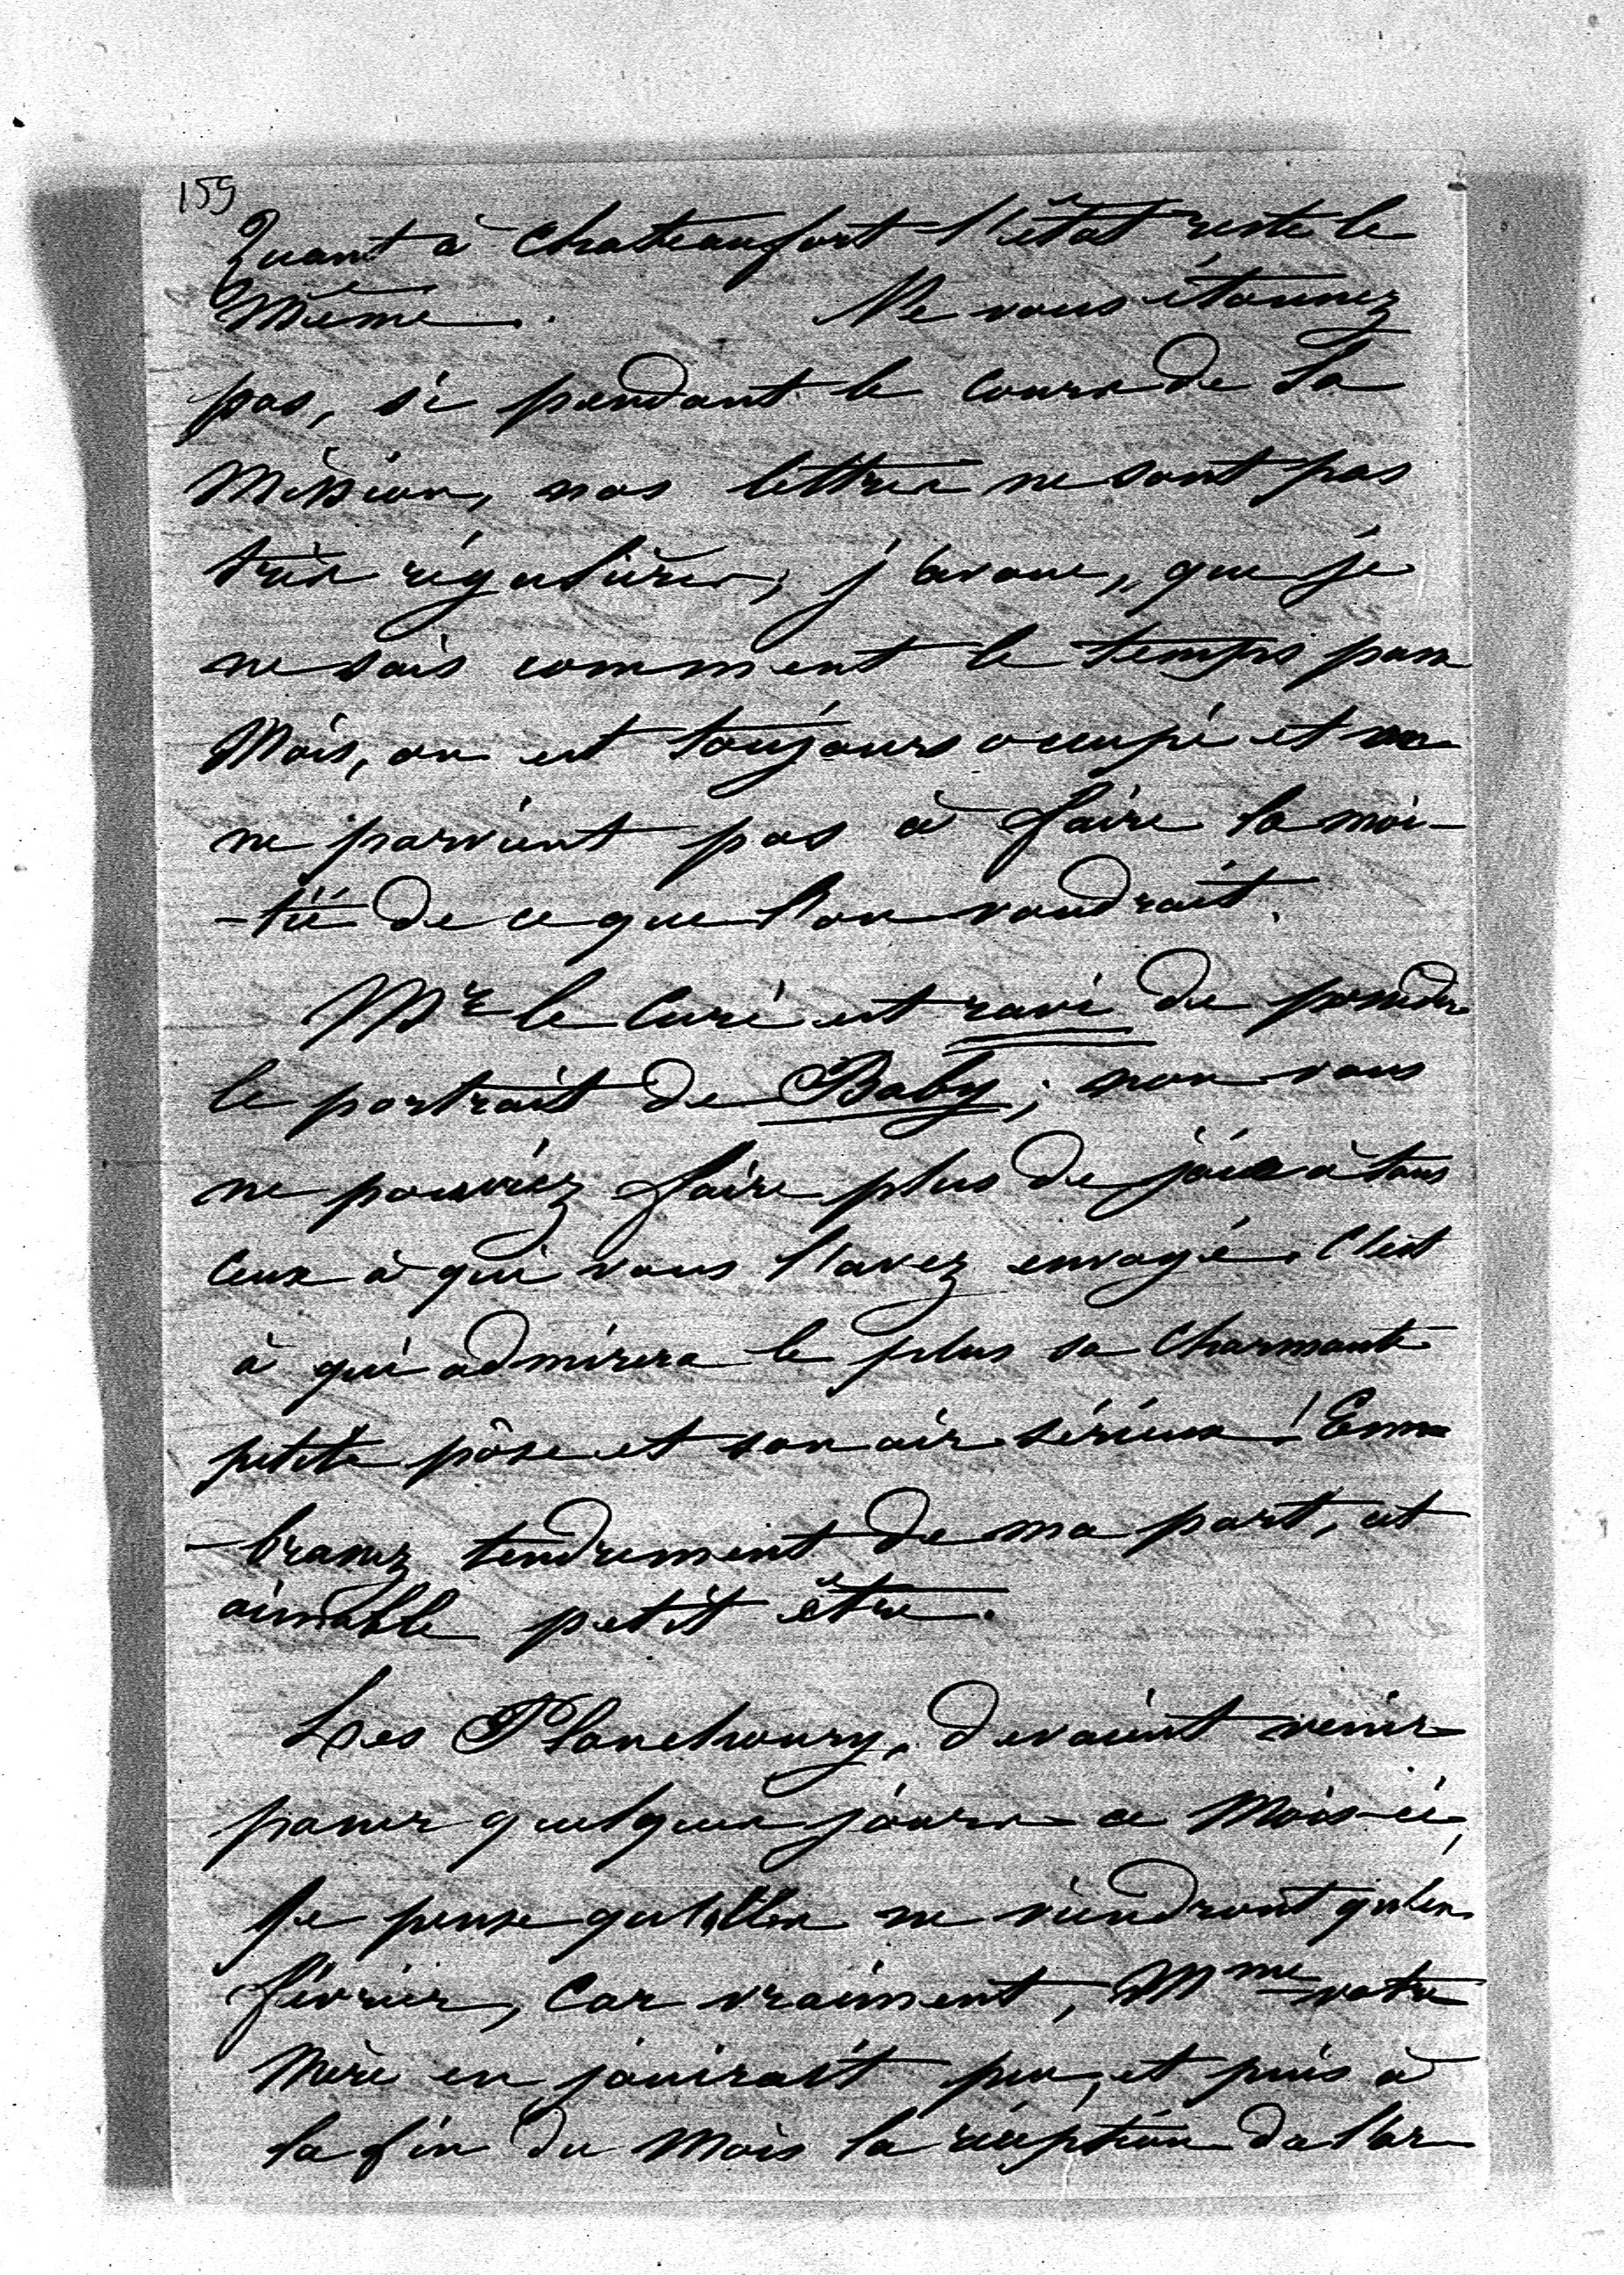 159
Quant à Chateaufort l'état reste le
Même. Ne vous étonnez
pas, si pendant le cours de la
Mission, nos lettres ne sont pas
très régulières; j'avoue, que je
ne sais comment le temps passe
Mais, on est toujours occupé et on
ne parvient pas à faire la moi-
-tié de ce que l'on voudrait.
Mr le Curé est ravi de posséder
le portrait de Baby; non vous
ne pouviez faire plus de joie à tous
ceux à qui vous l'avez envoyé. C'est
à qui admirera le plus sa charmante
petite pôse et son air sérieux! Em
-brassez tendrement de ma part, cet
aimable petit être.
Les Planchoury, devaient venir
passer quelques jours ce Mois-ci,
Je pense qu'elles ne viendront qu'en
février, car vraiment, Mme votre
Mère en jouirait peu, et puis à
la fin du Mois la réception de l'ar